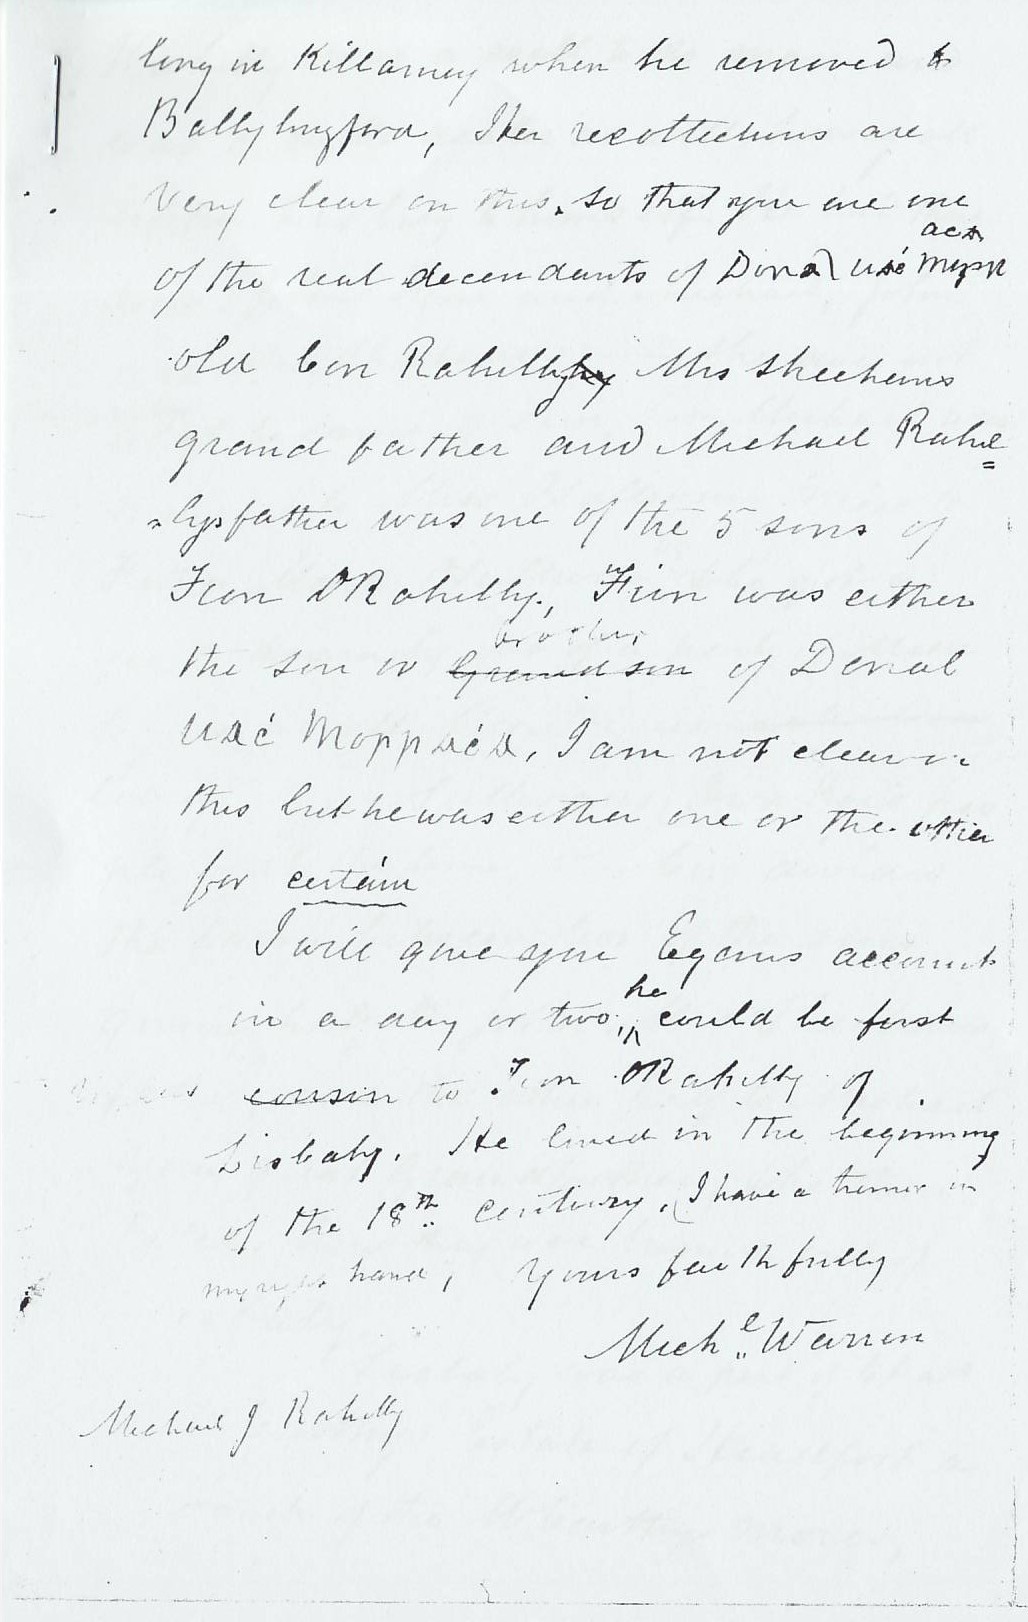 long in Killarney when he removed to
Ballylongford, Her recollections are
very clear on this. So that you are one
of the real decendants of Donal
old Con Rahilly Mrs Sheehans
grand father and Michael Rahil=
=lys father was one of the 5 sons of
Fion O Rahilly., Fion was either
brother
the son or Grandson of Donal
uaċ Moppaċa, I am not clear on
this but he was either one or the other
for certain
I will give you Egans account
in a day or two, he could be first
cousin to Fion O Rahilly of
Lisbahy. He lived in the beginning
of the 18th century. (I have a tremor in
my right hand, Yours faithfully
Michl Warren
Michael J Rahilly